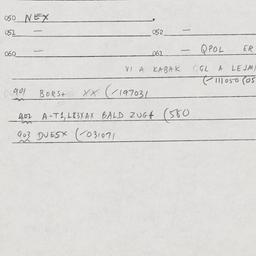 050 NEX
051 — 052 —
060 — 061 — QPOL ER
VI A KABAK GL A LEJM
(-111050 (05
901 BORS+ XX (-197031
902 A-T1, BALD ZUG+ (580
903 DUESX (-031071